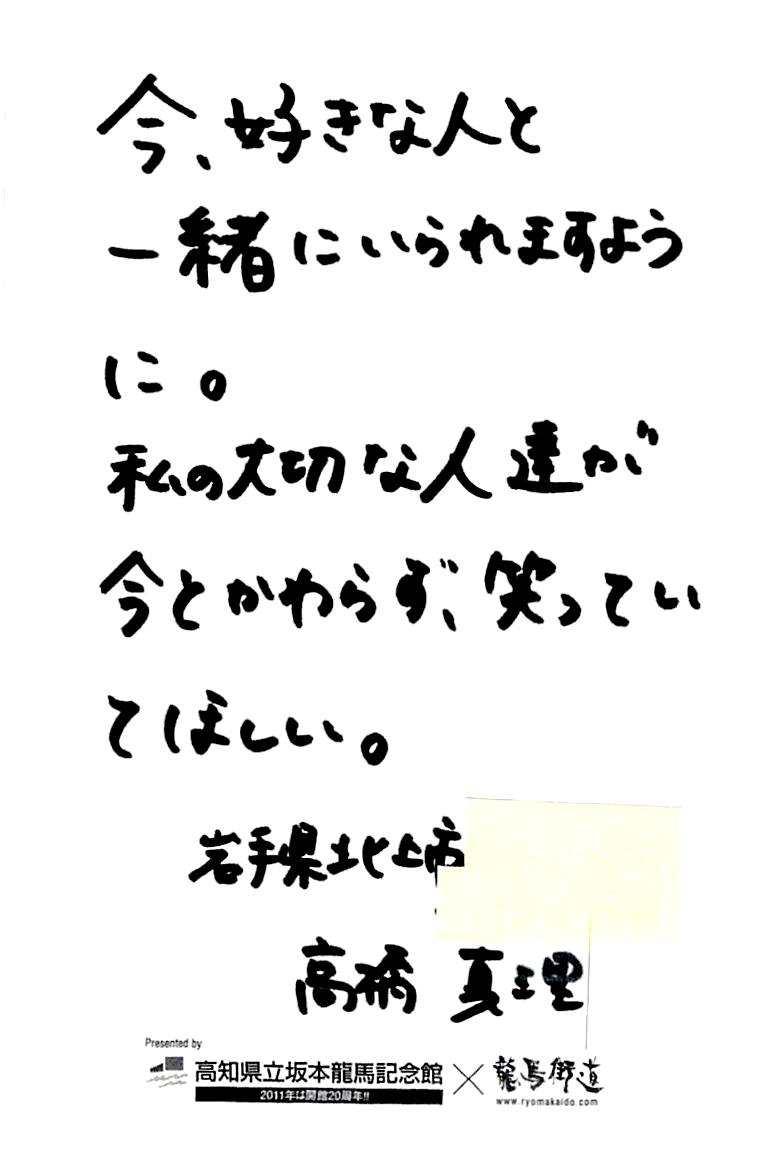 今、好きな人と
一緒にいられますよう
に。
私の大切な人達が
今とかわらず、笑ってい
てほしい。
岩手県北上市
高橋 真理
Presented by
高知県立坂本龍馬記念館 × 龍馬街道
2011年は開館20周年!!
www.ryomakaido.com